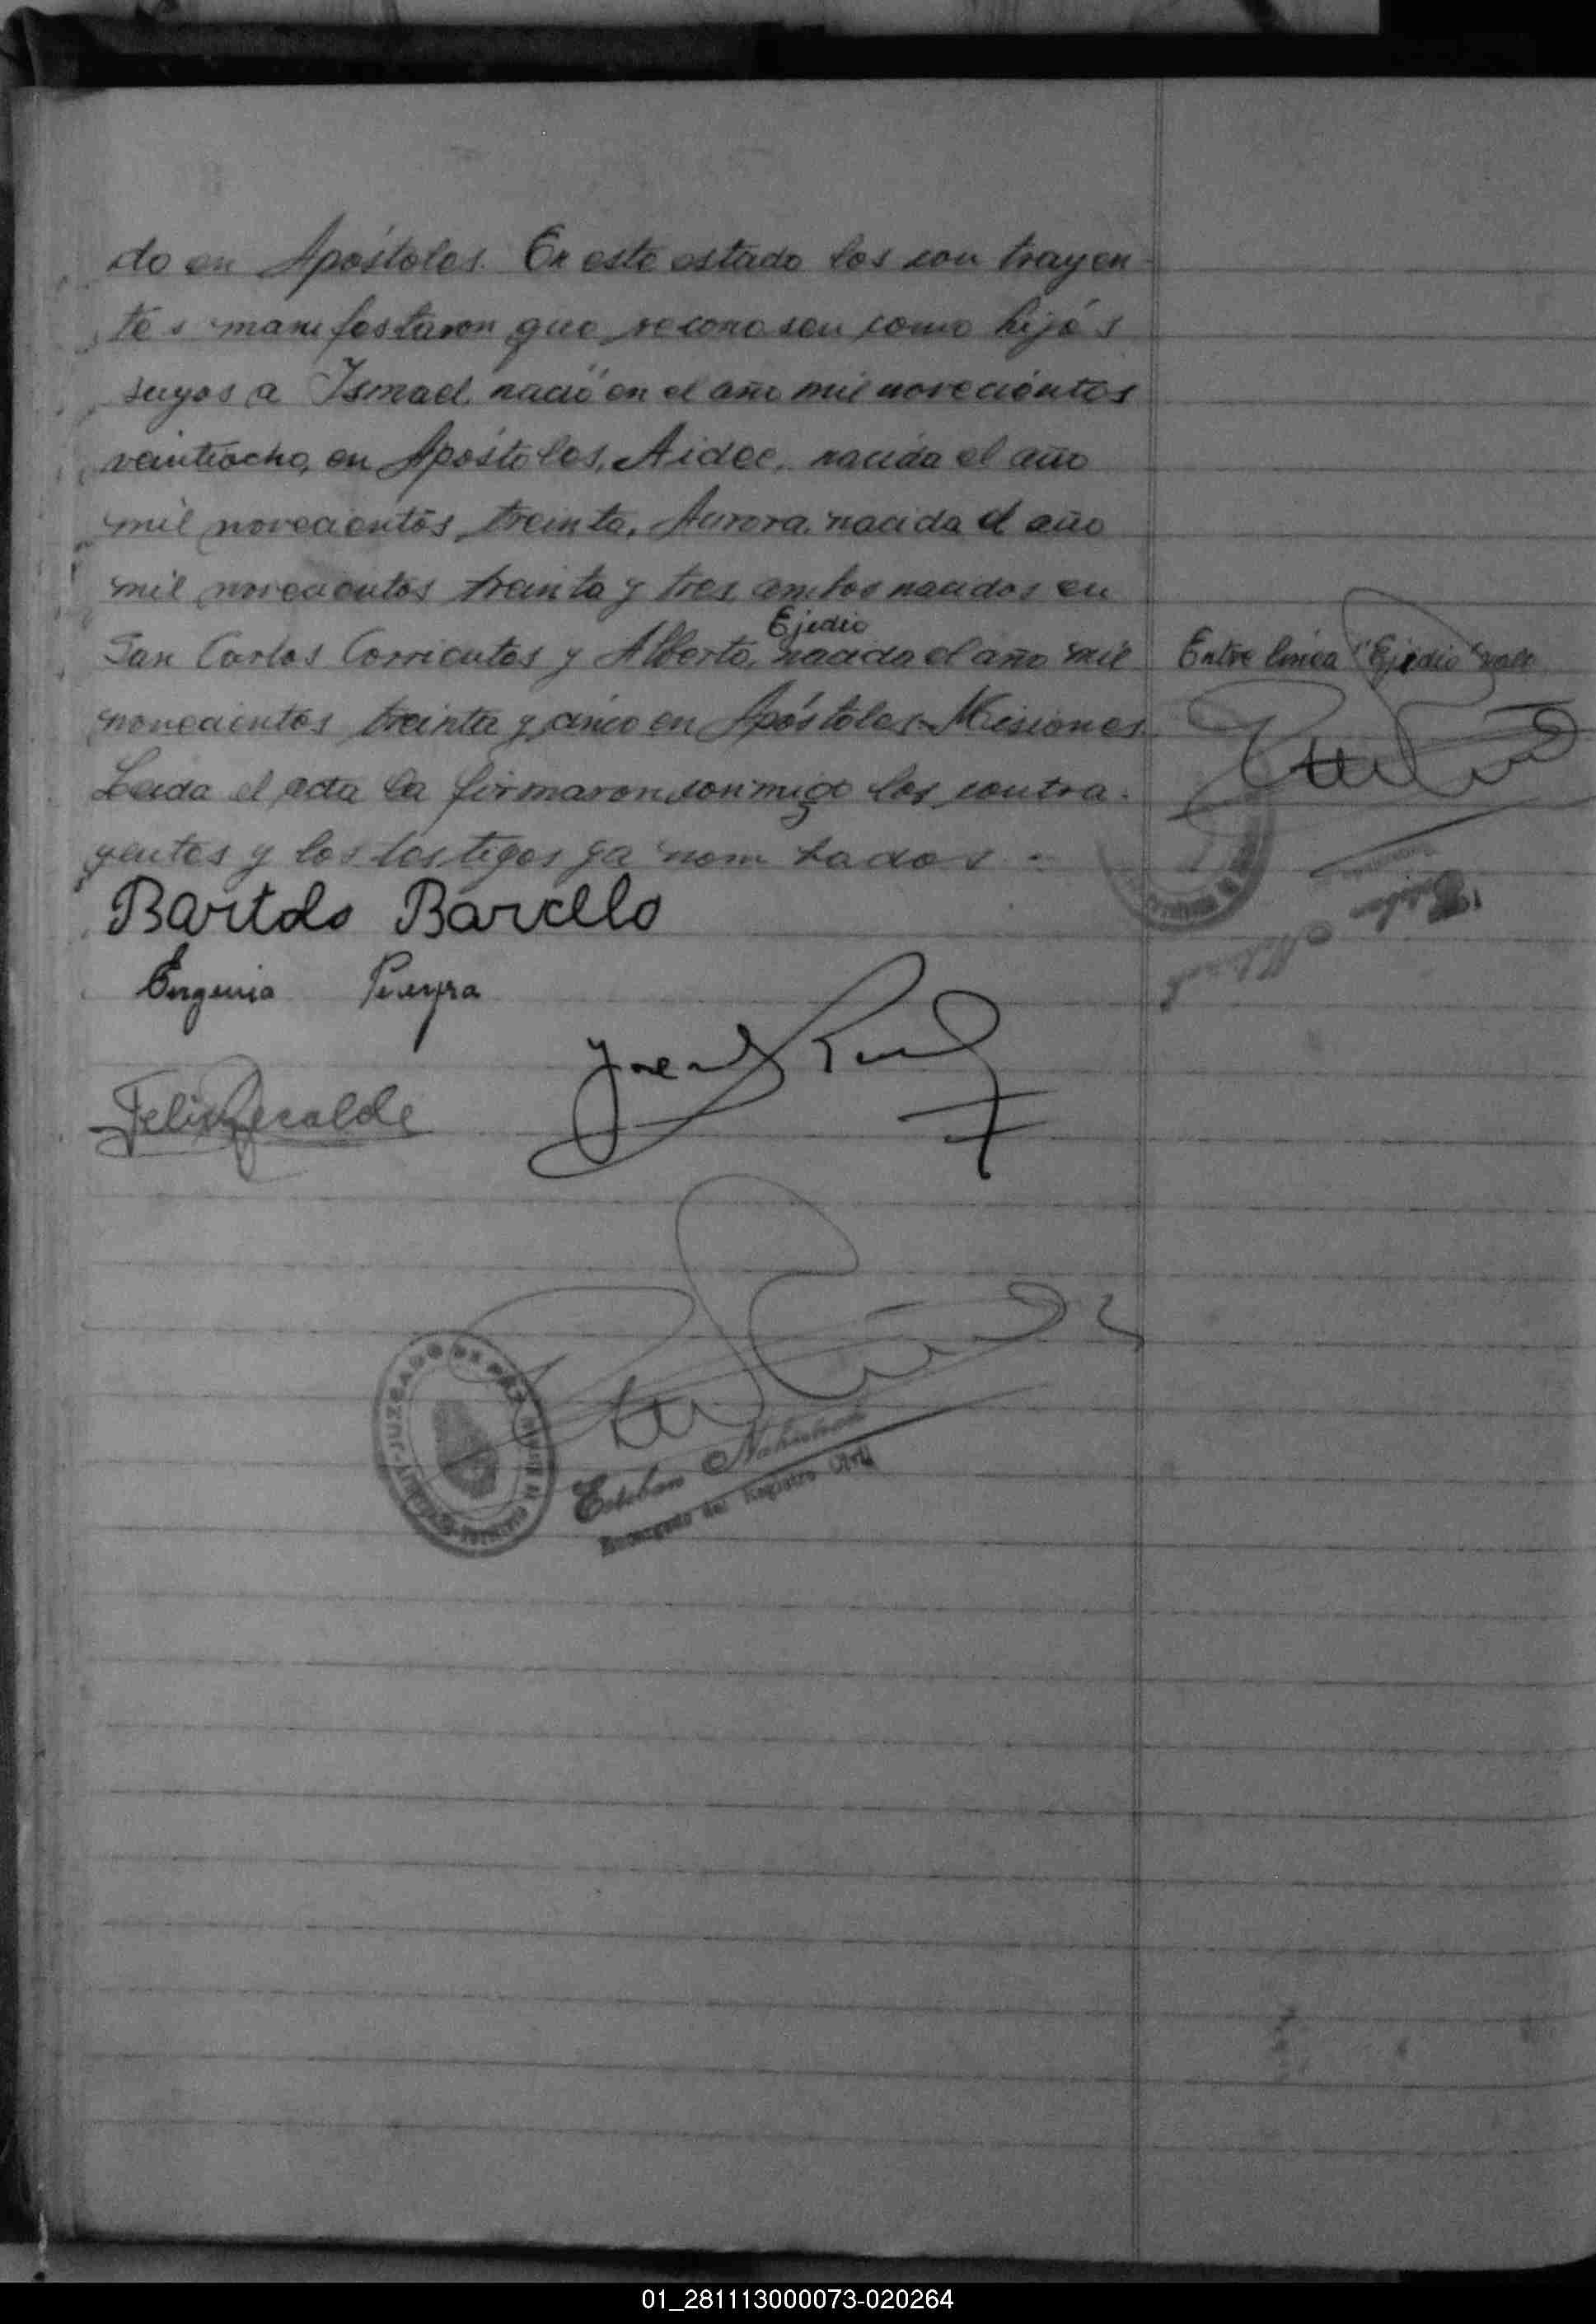 do en Apóstoles. En este estado los con trayen
tes manifestaron que reconosen como hijos
suyos a Ismael nació en el año mil novecientos
veintiocho, en Apóstoles, Aidee, nacida el año
mil novecientos treinta, Aurora, nacida el año
mil novecientos treinta y tres ambos nacidos en
Ejedio
San Carlos Corrientes y Alberto, nacido el año mil
novecientos treinta y cinco en Apóstoles-Misiones
Leida el acta la firmaron conmigo los contra-
yentes y los testigos ya nombados.-
Entre linea "Ejedio" vale
Bartolo Barcello
Eugenia Pereyra
Felix Recalde
JUZGADO DE PAZ
Esteban
Encargado del Registro Civil
01_281113000073-020264